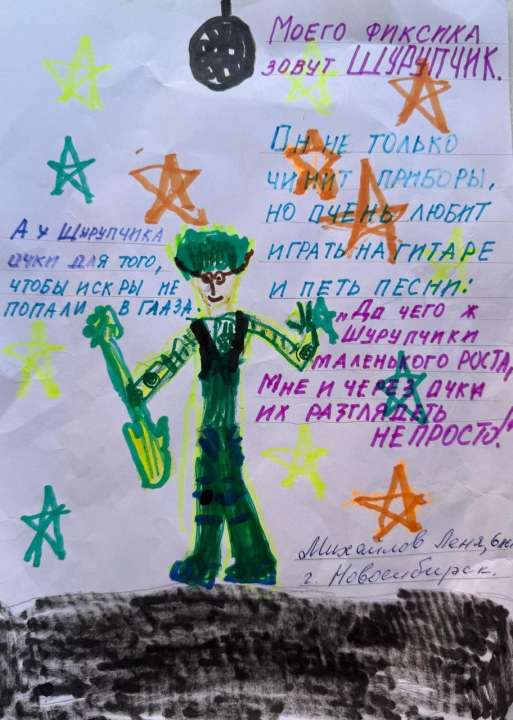 Моего фиксика
зовут Шурупчик.
Он не только
чинит приборы,
но очень любит
играть на гитаре
и петь песни:
„Да чего ж
Шурупчики
маленького роста,
Мне и через очки
их разглядеть
не просто!"
А у Шурупчика
очки для того,
чтобы искры не
попали в глаза.
Михайлов Лёня, 6
г. Новосибирск.